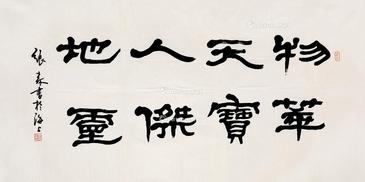 物華
天寶
人傑
地靈
張森書於海上